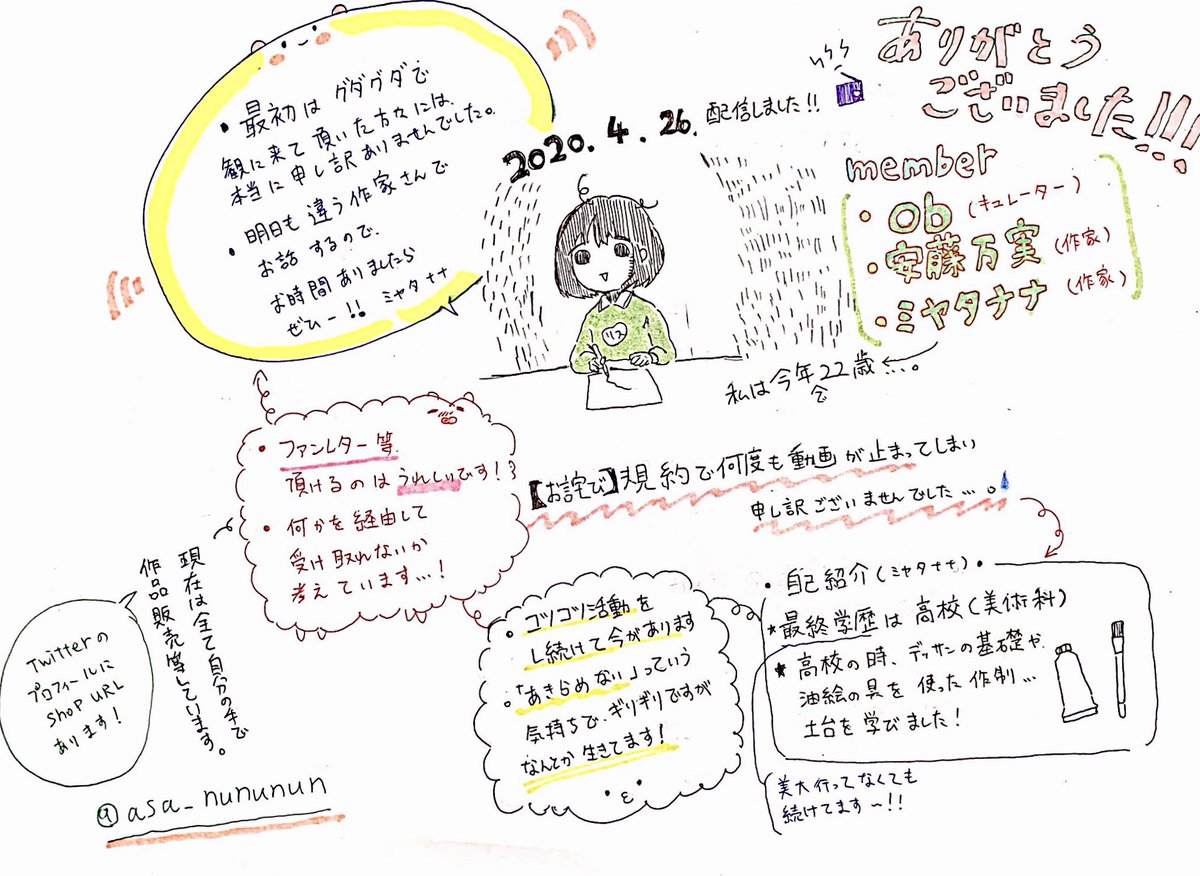 ありがとう
ございました!!!
2020.4.26.配信しました!!
member
・ob(キュレーター)
・安藤万実(作家)
・ミヤタナナ(作家)
私は今年22歳…。
・最初はグダグダで
観に来て頂いた方々には、
本当に申し訳ありませんでした。
・明日も違う作家さんで
お話するので、
お時間ありましたら
ぜひー!! ミヤタナナ
リス
【お詫び】規約で何度も動画が止まってしまい
申し訳ございませんでした…。
・自己紹介(ミヤタナナ)・
★最終学歴は高校(美術科)
★高校の時、デッサンの基礎や
油絵の具を使った作制…
土台を学びました!
美大行ってなくても
続けてます〜!!
・コツコツ活動を
し続けて今があります
。「あきらめない」っていう
気持ちで、ギリギリですが
なんとか生きてます!
・ファンレター等
頂けるのはうれしいです!
・何かを経由して
受け取れないか
考えています…!
現在は全て自分の手で
作品販売等しています。
Twitterの
プロフィールに
SHOP URL
あります!
@asa_nununun